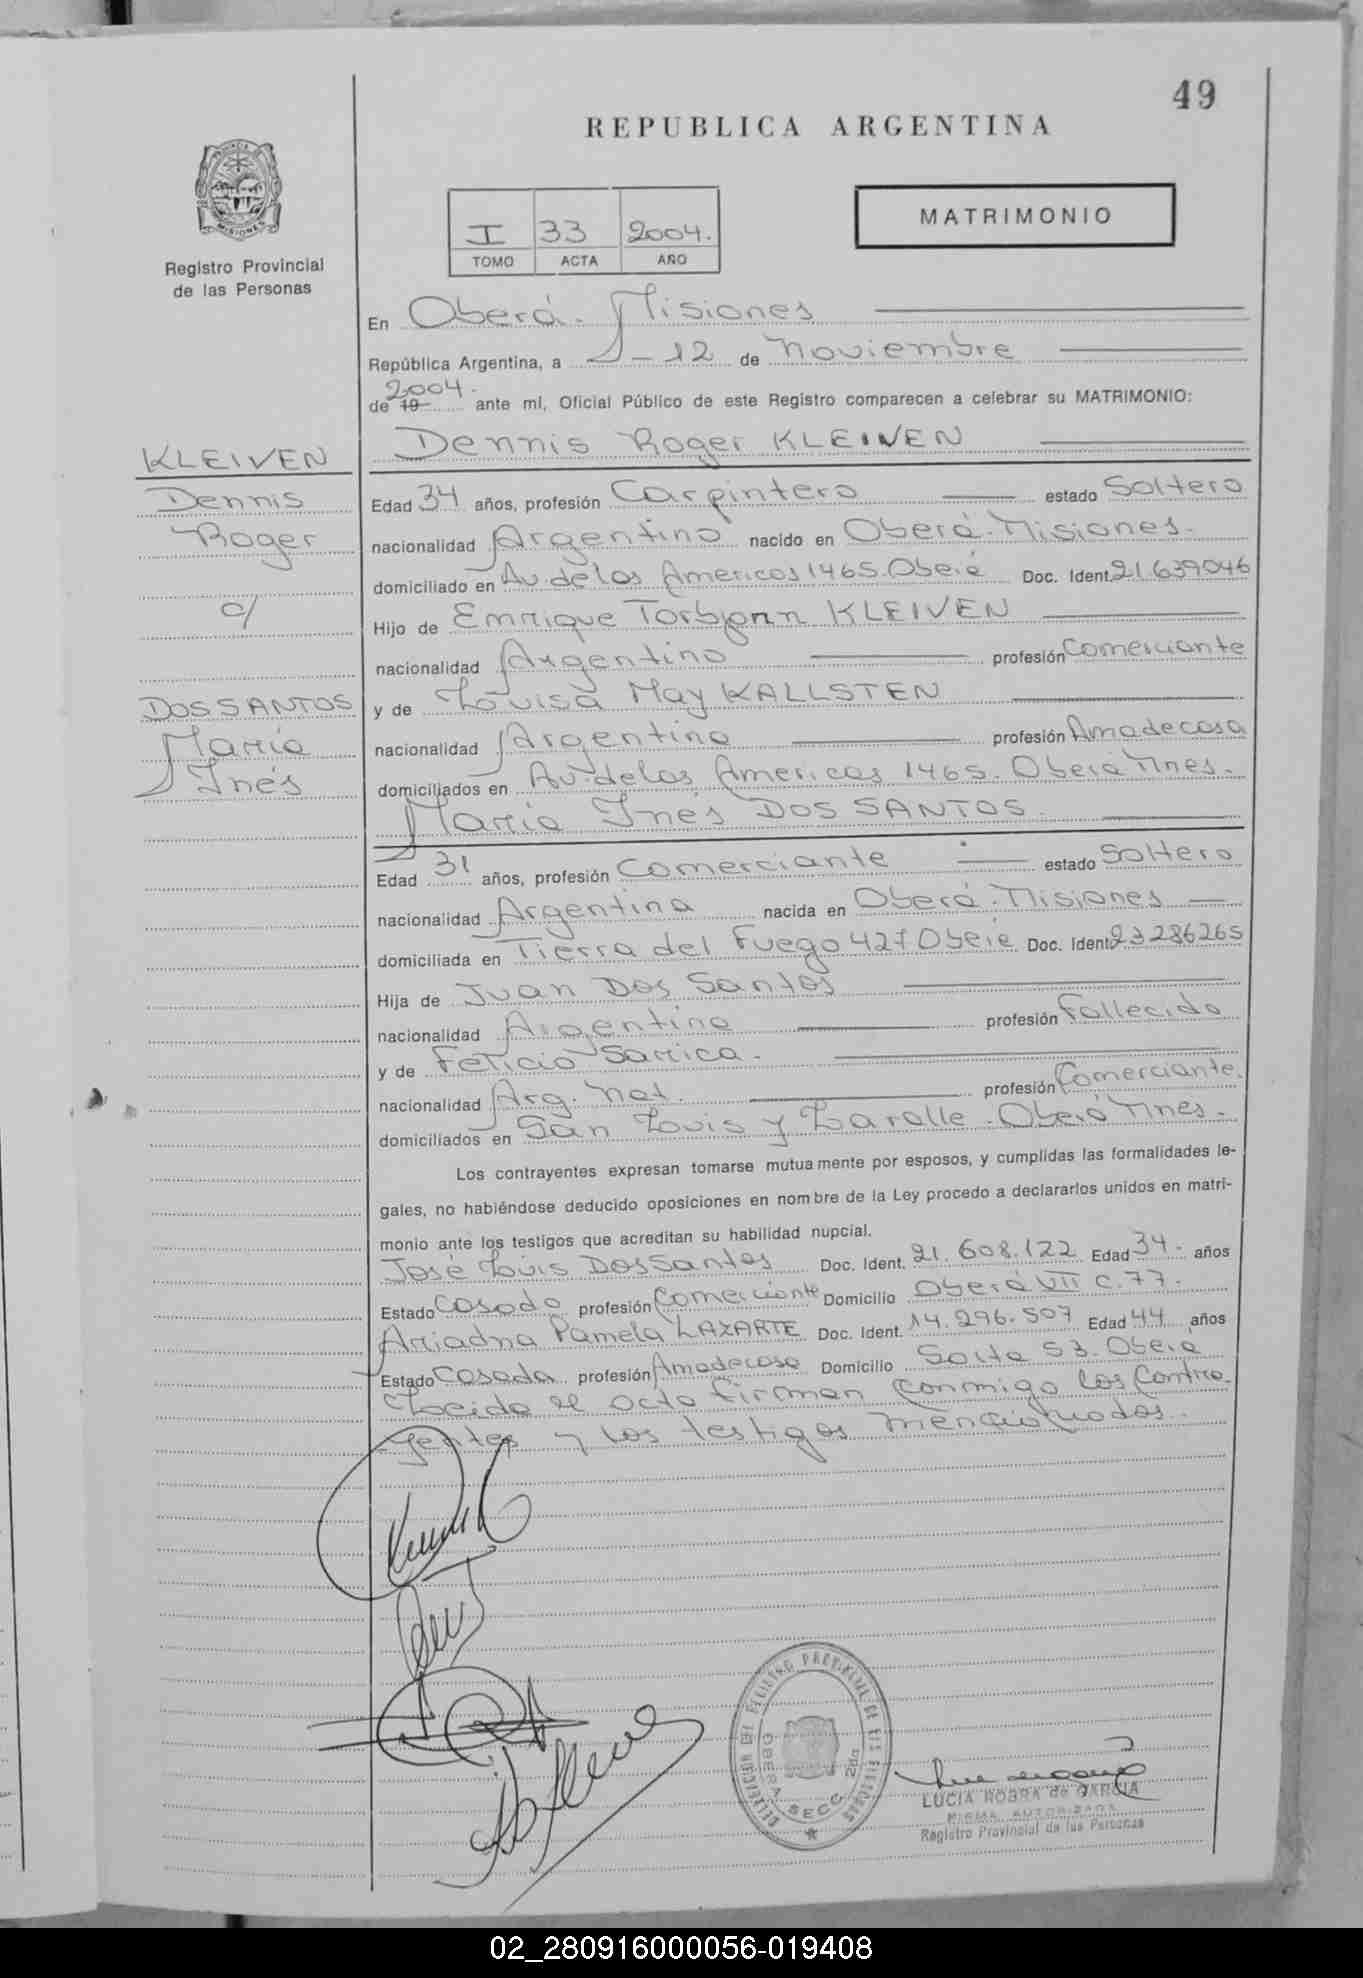 49
REPUBLICA ARGENTINA
I 33 2004.
TOMO ACTA AÑO
MATRIMONIO
MISIONES
Registro Provincial
de las Personas
En Oberá. Misiones
República Argentina, a -12 de Noviembre
2004.
de 19 ante mí, Oficial Público de este Registro comparecen a celebrar su MATRIMONIO:
KLEIVEN
Dennis
Roger
c/
DOS SANTOS
María
Inés
Dennis Roger KLEIVEN
Edad 34 años, profesión Carpintero estado Soltero
nacionalidad Argentino nacido en Oberá. Misiones.
domiciliado en Av. de las Americas 1465. Oberá Doc. Ident. 21.639046
Hijo de Enrique Torbjorn KLEIVEN
nacionalidad Argentino profesión Comerciante
y de Louisa May KALLSTEN
nacionalidad Argentina profesión Ama de casa
domiciliados en Av. de las Americas 1465. Oberá Mnes.
María Inés DOS SANTOS.
Edad 31 años, profesión Comerciante estado Soltero
nacionalidad Argentina nacida en Oberá. Misiones
domiciliada en Tierra del Fuego 427 Oberá Doc. Ident. 23286265
Hija de Juan Dos Santos
nacionalidad Argentino profesión Fallecido
y de Felicia
nacionalidad Arg. Nat. profesión Comerciante.
domiciliados en San Louis y Oberá Mnes.
Los contrayentes expresan tomarse mutuamente por esposos, y cumplidas las formalidades le-
gales, no habiéndose deducido oposiciones en nombre de la Ley procedo a declararlos unidos en matri-
monio ante los testigos que acreditan su habilidad nupcial.
José Louis Dos Santos Doc. Ident. 21.608.122 Edad 34. años
Estado Casado profesión Comerciante Domicilio Oberá VII C.77.
Ariadna Pamela LAZARTE Doc. Ident. 14.296.507 Edad 44 años
Estado Casada profesión Ama de casa Domicilio Salta 53. Oberá
Leeida el acta firman conmigo los Contra
yentes y los testigos mencionados.
DELEGACION DEL REGISTRO PROVINCIAL DE LAS PERSONAS
OBERA SECC. 2da
LUCIA ROBRA de GARCIA
FIRMA AUTORIZADA
Registro Provincial de las Personas
02_280916000056-019408